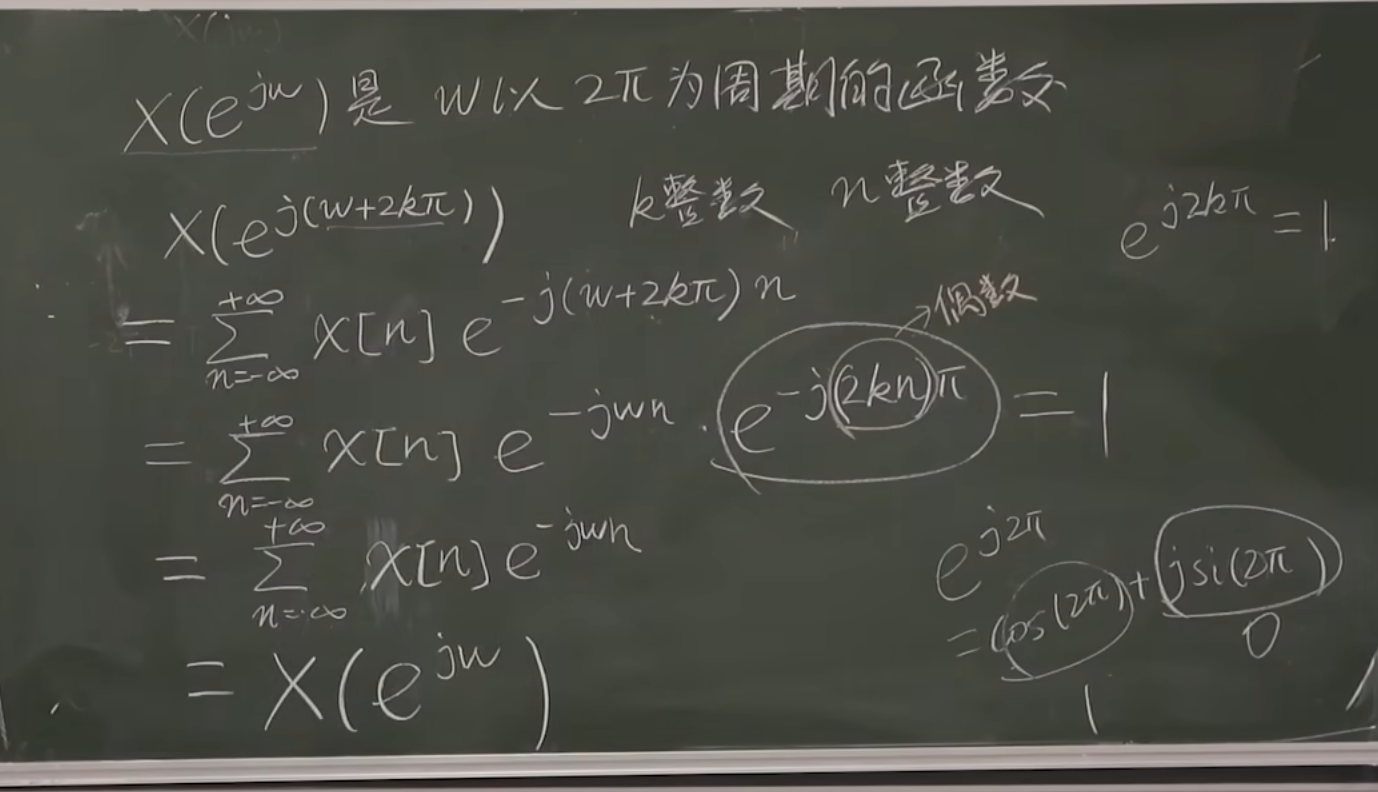 X(jw)
X(e^{jw})是 w以 2π为周期的函数
X(e^{j(w+2kπ)}) k整数 n整数 e^{j2kπ}=1
= \sum_{n=-∞}^{+∞} x[n] e^{-j(w+2kπ)n} →偶数
= \sum_{n=-∞}^{+∞} x[n] e^{-jwn} · e^{-j(2kn)π} = 1
= \sum_{n=-∞}^{+∞} x[n] e^{-jwn}
e^{j2π}
= cos(2π) + jsi(2π)
1 0
= X(e^{jw})